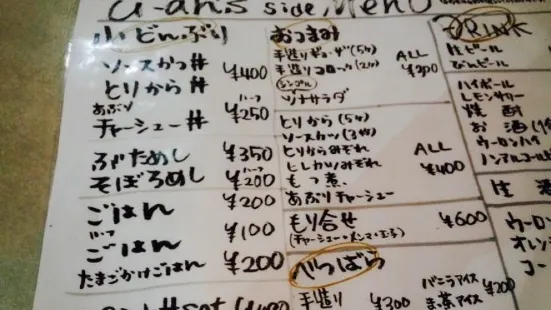 side Menu
小どんぶり
ソースかつ丼
とりから丼
¥400
ハーフ
¥250
あぶり
チャーシュー丼
ぶためし
¥350
そぼろめし
ハーフ
¥200
ごはん
¥200
ハーフ
ごはん
¥100
たまごかけごはん
¥200
おつまみ
手造りギョーザ(5ヶ)
手造りコロッケ(2ヶ)
ALL
¥300
シンプル
ツナサラダ
とりから(5ヶ)
ソースカツ(3ヶ)
とりからみぞれ
ALL
ヒレカツみぞれ
¥400
もつ煮
あぶりチャーシュー
もり合せ
¥600
(チャーシュー・メンマ・玉子)
べつばら
手造り
¥300
バニラアイス
¥200
抹茶アイス
DRINK
生ビール
びんビール
ハイボール
レモンサワー
焼酎
お酒
ウーロンハイ
ノンアルコール
生酒
ウーロン
オレン
コー